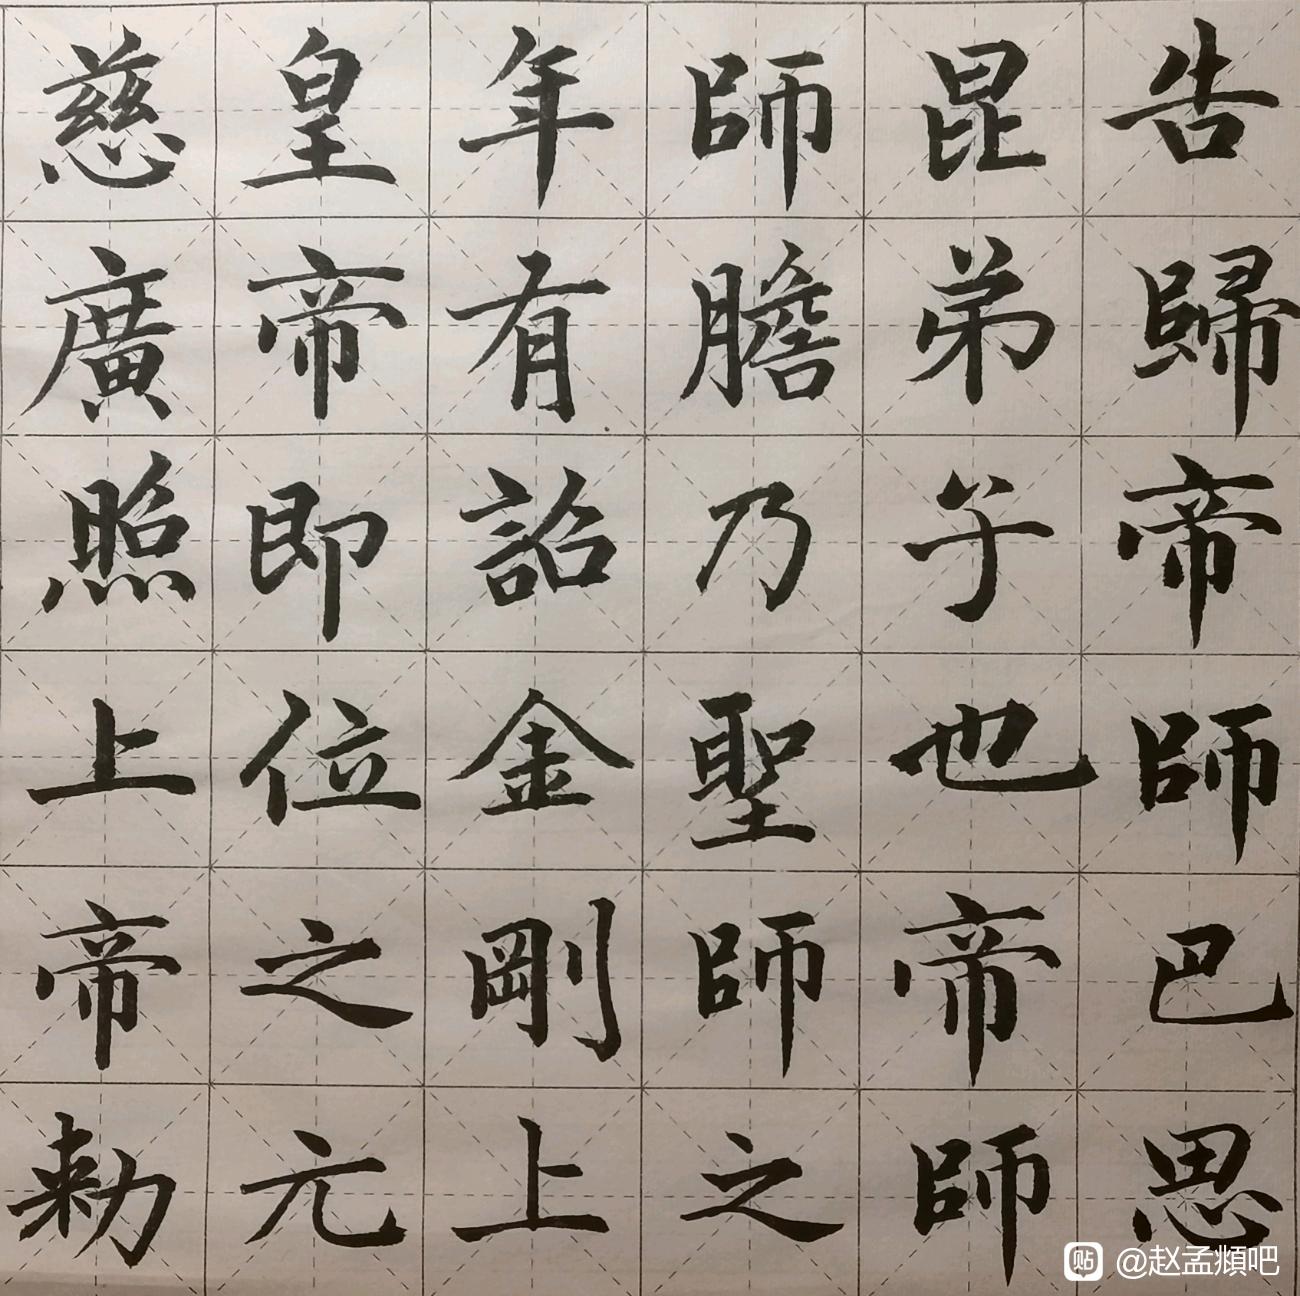 告歸帝師巴思
昆弟子也帝師
師膽乃聖師之
年有詔金剛上
皇帝即位之元
慈廣照上帝勅
贴 @赵孟頫吧